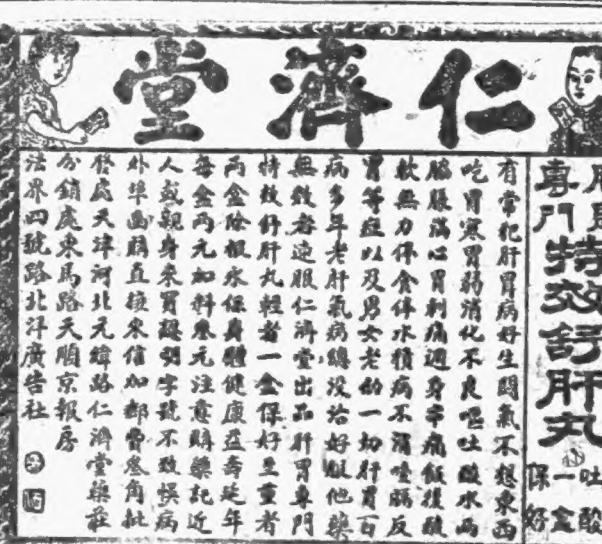 仁濟堂
肝胃
專門特效舒肝丸
吐酸
一盒
保好
有常犯肝胃病好生悶氣不想東西
吃胃寒胃弱消化不良嘔吐酸水兩
脇脹滿心胃刺痛週身串痛飯後酸
軟無力停食停水積病不消噎膈反
胃等症以及男女老幼一切肝胃百
病多年老肝氣病總沒治好服他藥
無效者速服仁濟堂出品肝胃專門
特效舒肝丸輕者一盒保好至重者
兩盒除根永保身體健康益壽延年
每盒兩元加料叁元注意購藥記近
人或親身來買認明字號不致悞病
外埠函購直接來信加郵費叁角批
發處天津河北元緯路仁濟堂藥莊
分銷處東馬路天順京報房
法界四號路北洋廣告社